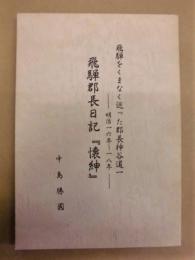 飛騨をくまなく巡った郡長神谷道一
――明治一六年―一八年――
飛騨郡長日記『懐紳』
中島勝国